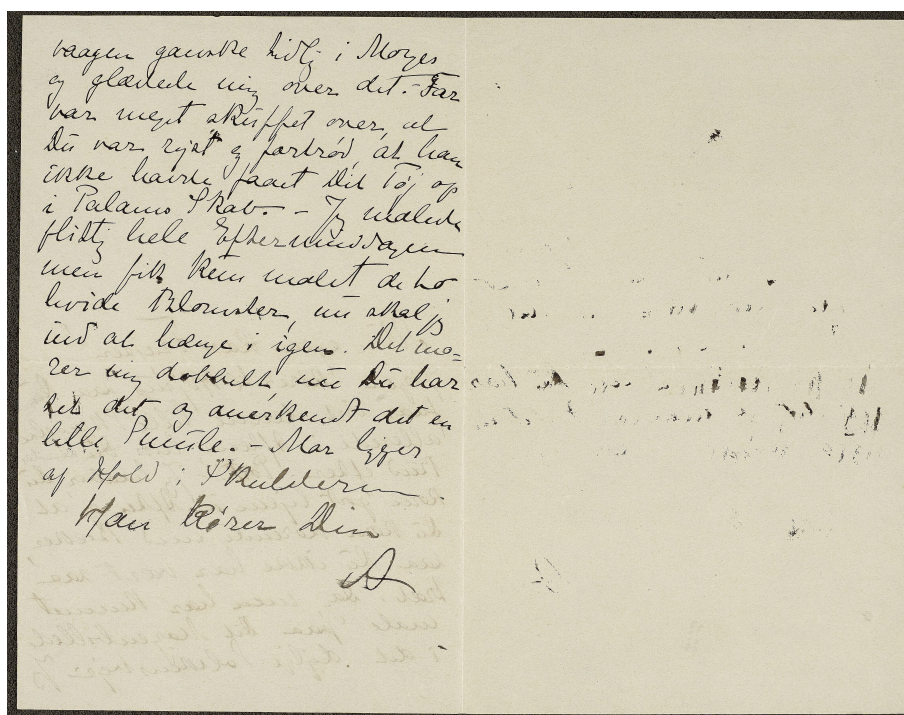 vaagen ganske tidlig i Morges
og glædede mig over det. – Far
var meget skuffet over, at
Du var rejst og fortrød, at han
ikke havde faaet Dit Tøj op
i Palams Skab. – Jeg malede
flittig hele Eftermiddagen
men fik kun malet de to
hvide Blomster, nu skal jeg
ind at hænge i igen. Det mo-
rer mig dobbelt nu Du har
set det og anerkendt det en
lille Smule. – Mor ligger
af Hold i Skulderen
Din
A